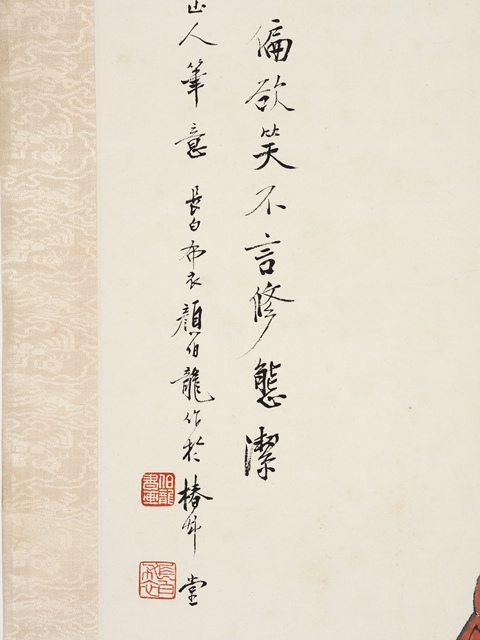 偏欲笑不言修態潔
山人筆意 長白布衣顏伯龍作於椿艸堂
伯龍書畫
長白布衣